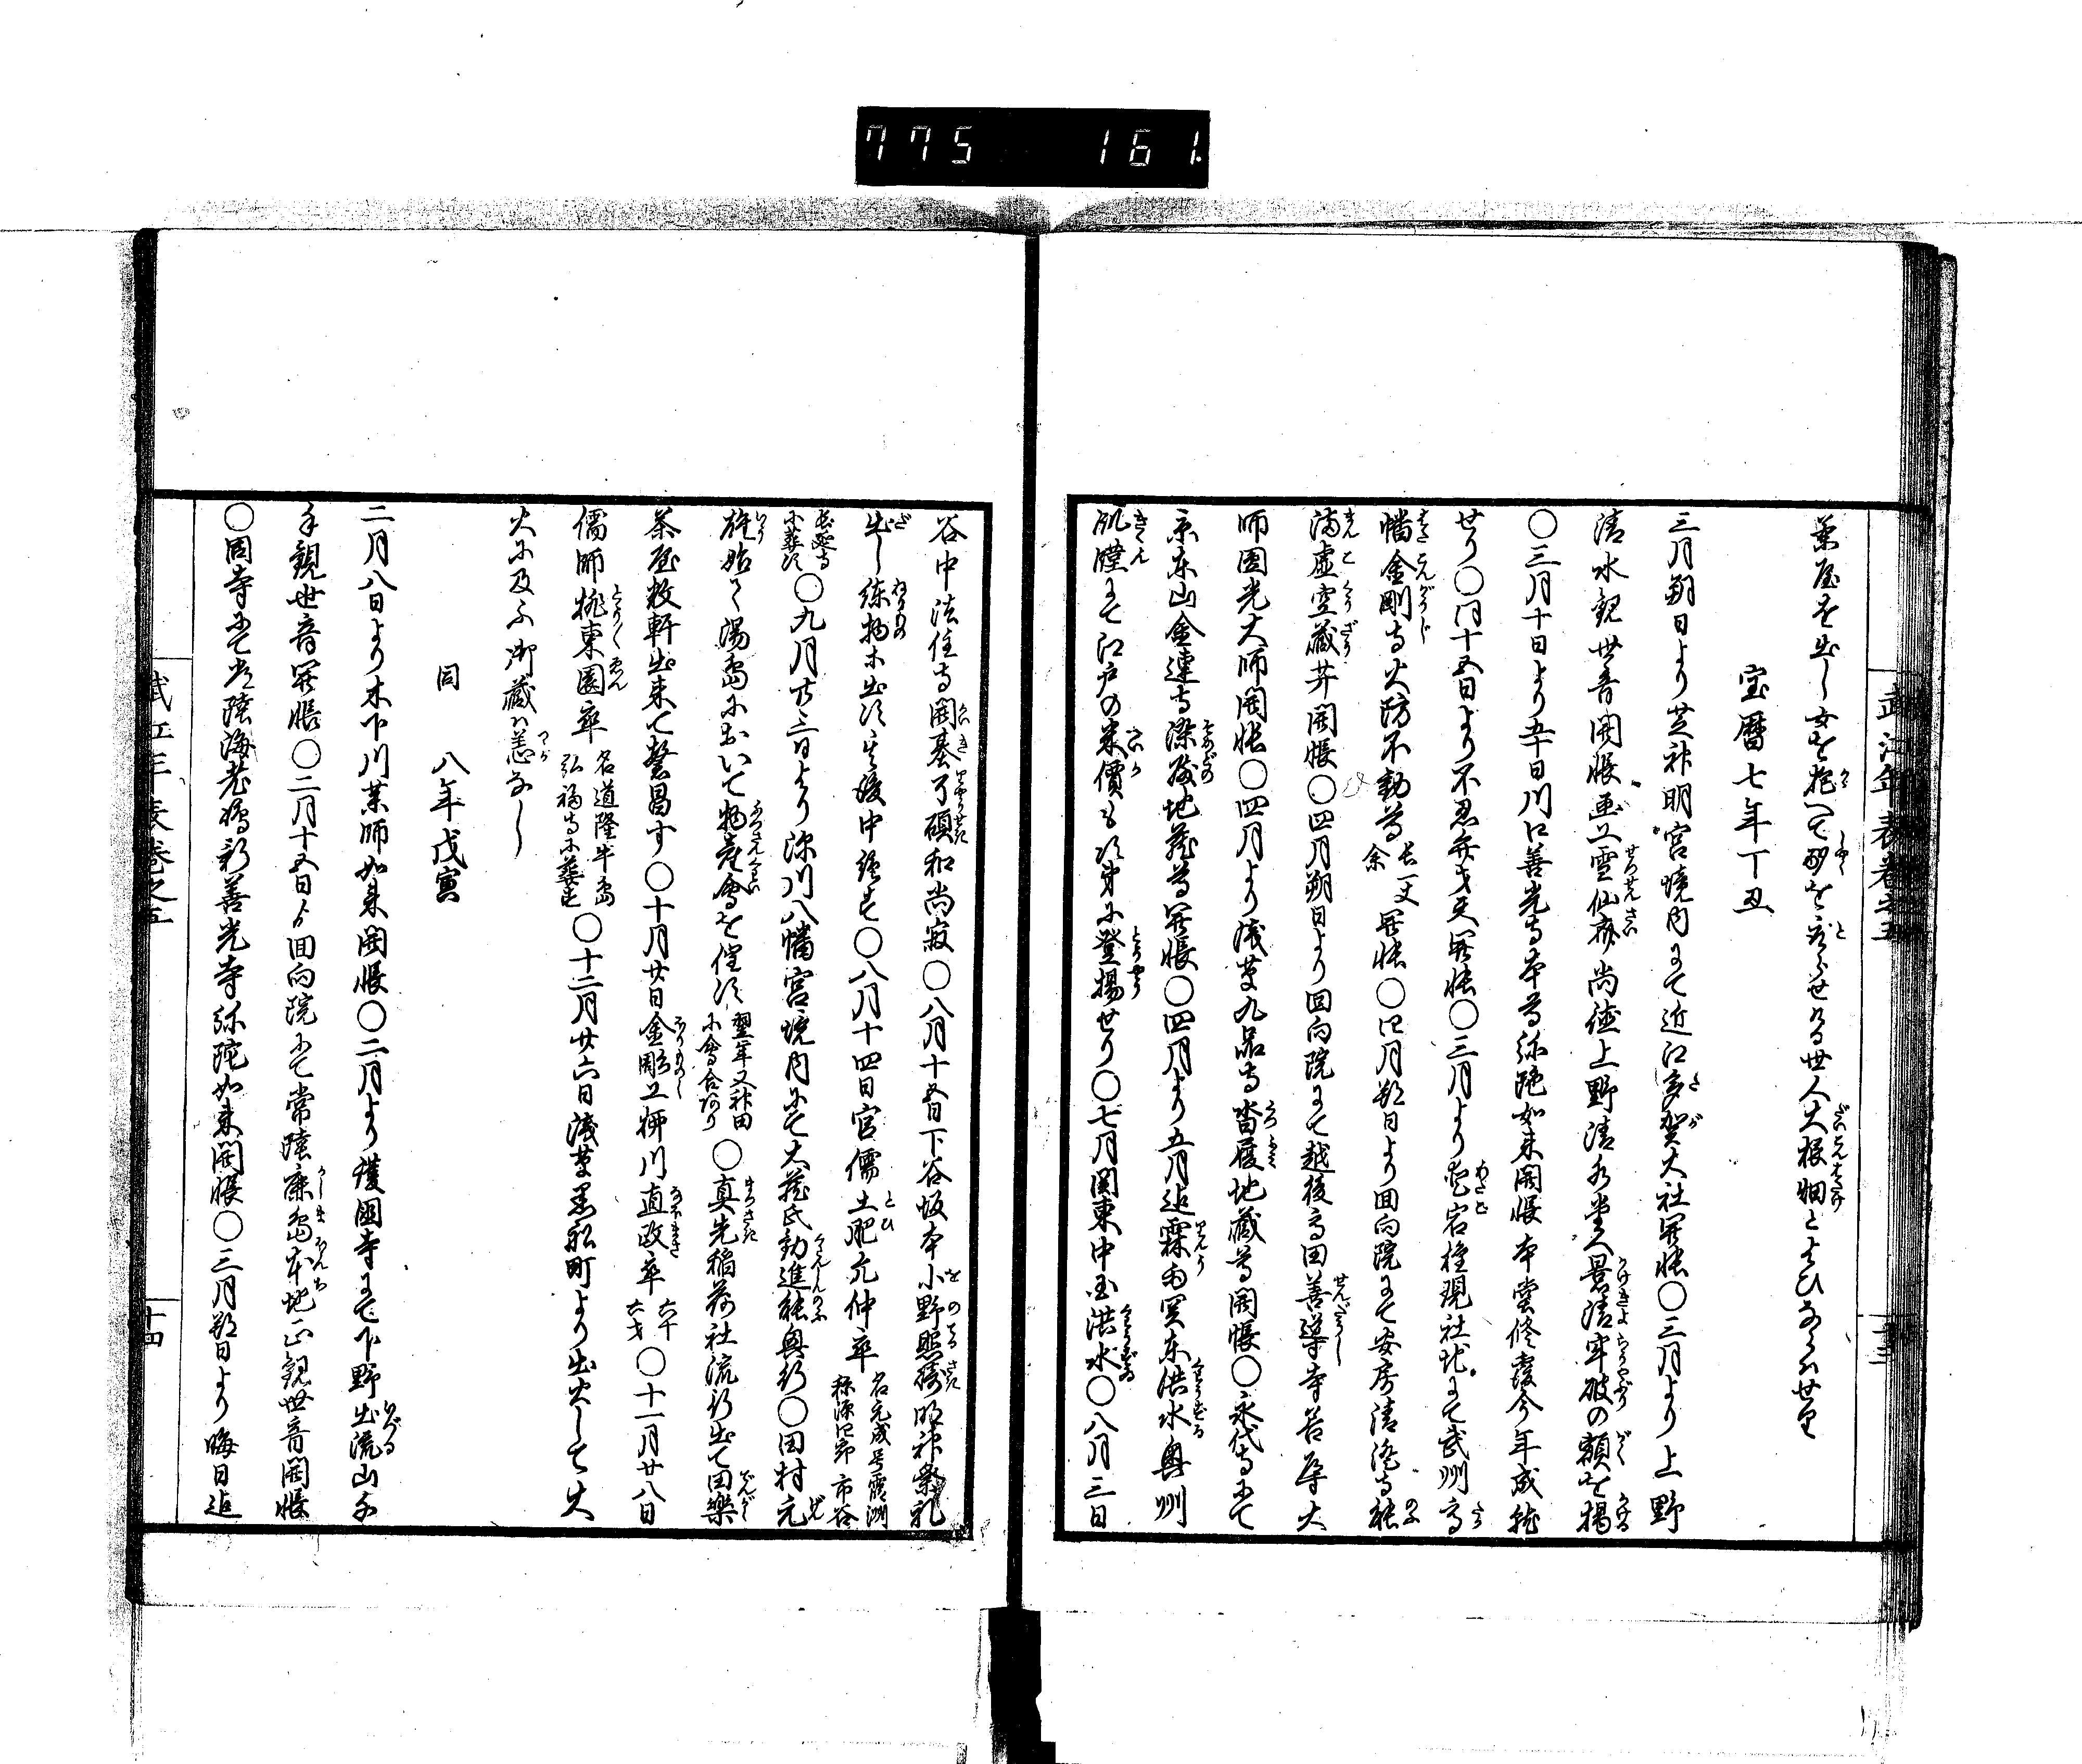 775 161.
武江年表巻之五
十三
茶屋を出し女を抱へて酌をとらせける世人大根畑とよひならハせり
宝暦七年丁丑
三月朔日より芝神明宮境内にて近江多賀大社開帳〇三月より上野
清水観世音開帳画工雪仙斎尚徳上野清水堂へ景清牢破の額を掲
〇三月十日より五十日川口善光寺本尊弥陀如来開帳本堂修覆今年成就
せり〇同十五日より不忍弁才天開帳〇三月より愛宕権現社地にて武州高
幡金剛寺火防不動尊長一丈余開帳〇四月朔日より回向院にて安房清澄寺能
満虚空蔵井開帳〇四月朔日より回向院にて越後高田善導寺善導大
師圓光大師開帳〇四月より浅草九品寺沓履地蔵尊開帳〇永代寺にて
京東山金蓮寺染殿地蔵尊開帳〇四月より五月迄霖雨関東洪水奥州
飢饉にて江戸の米價も次第に登揚せり〇七月関東中国洪水〇八月三日
谷中法住寺開基了碩和尚寂〇八月十五日下谷坂本小野照崎明神祭礼
出し練物等出る其後中絶す〇八月十四日官儒土肥允仲卒名允成号霞洲称源四郎市谷
長延寺に葬す〇九月廿三日より深川八幡宮境内にて大蔵氏勧進能興行〇田村元
雄始て湯島において物産會を催す翌年又神田に會合あり〇真先稲荷社流行出て田樂
茶屋数軒出来て繁昌す〇十月廿日金彫工柳川直政卒六十六才〇十一月廿八日
儒師桃東園卒名道隆牛島弘福寺に葬す〇十二月廿六日浅草黒船町より出火して大
火に及ふ御蔵ハ恙なし
同 八年戊寅
二月八日より木下川薬師如来開帳〇二月より護国寺にて下野出流山千
手観世音開帳〇二月十五日より回向院にて常陸鹿島本地正観世音開帳
〇同寺にて常陸海老嶋新善光寺弥陀如来開帳〇三月朔日より晦日迄
武江年表巻之五
十四